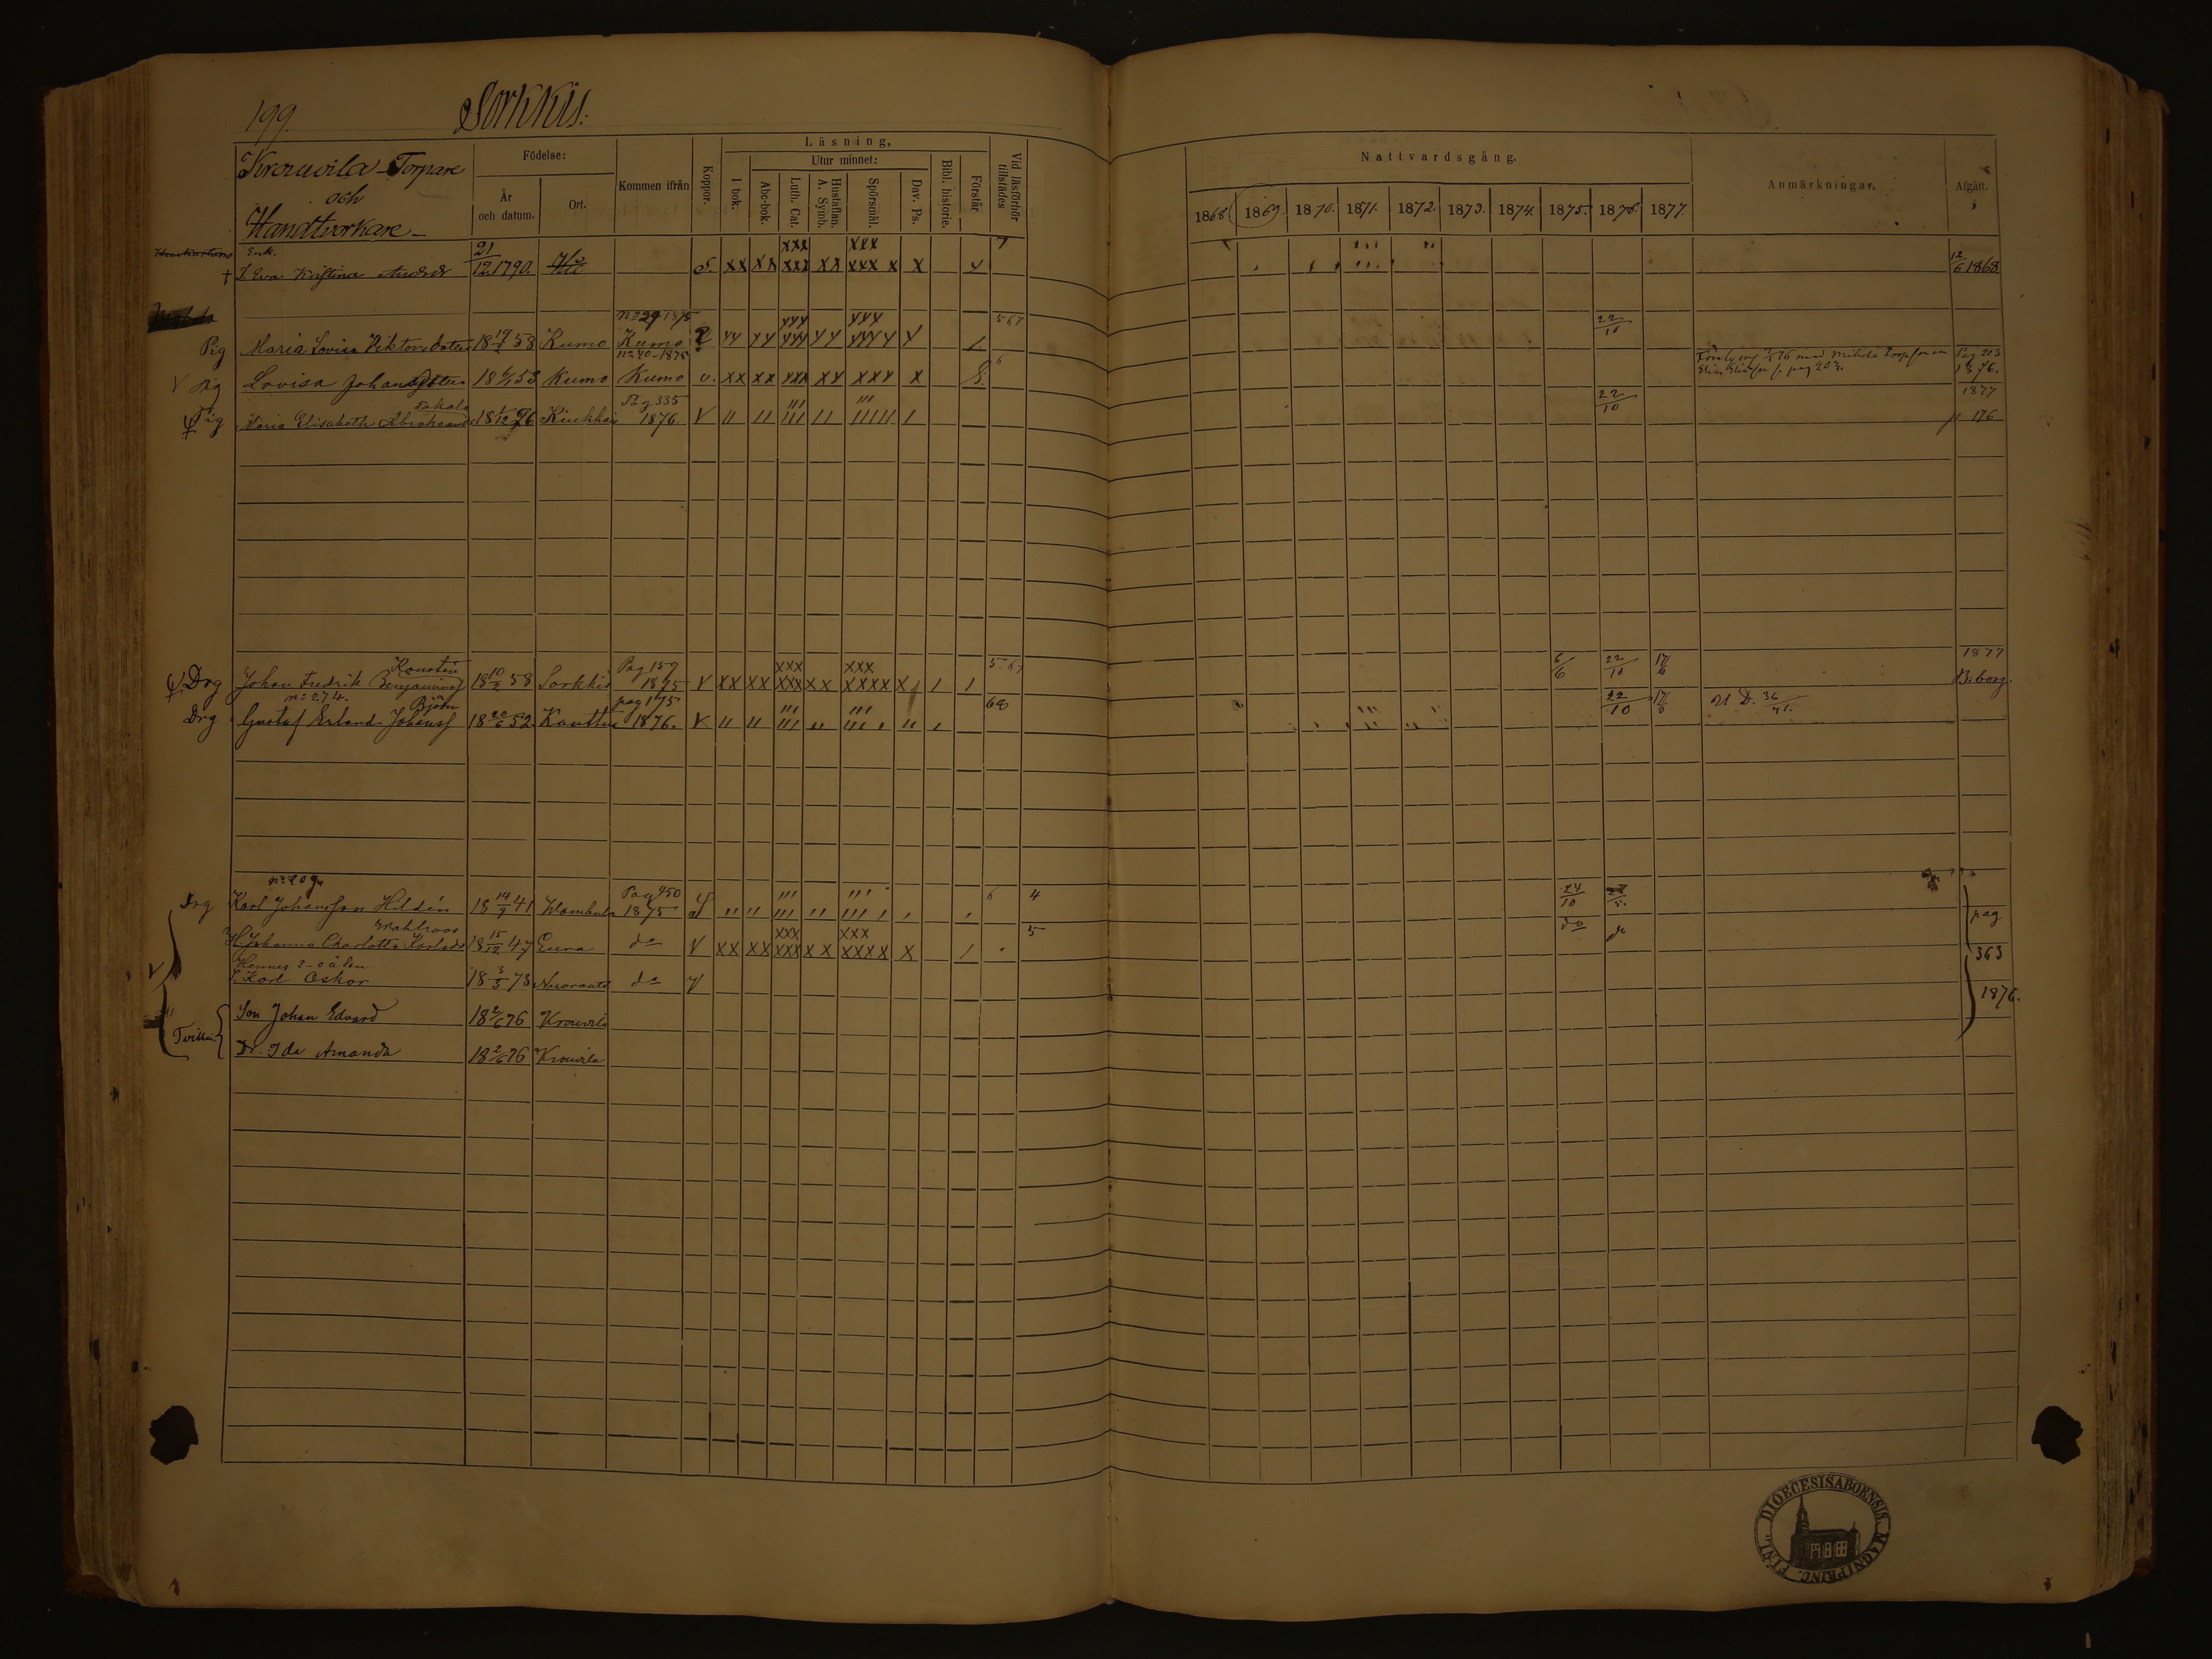 199. Sorkkis.
Krouvila Torpare
och
Handtverkare
Födelse:
År
och datum.
Ort.
Kommen ifrån
Koppor.
Läsning,
I bok.
Utur minnet:
Abc-bok.
Luth. Cat.
Hustaflan.
A. Symb.
Spörsmål.
Dav. Ps.
Bibl. historie.
Förstår
Vid läsförhör
tillstädes
Nattvardsgång.
1868 1869. 1870. 1871. 1872. 1873. 1874. 1875. 1876. 1877.
Anmärkningar.
Afgått.
Enk.
† Eva Kristina 21/12 1790. S. xx xx xxx xxx xx xxx xxx x x 12/6 1868
No 29 1875
Pig Maria Lovisa Viktorsdotter 18 19/2 58 Kumo Kumo 567 22/10
No 40-1875
V Pig Lovisa Johansdotter 18 6/1 53 Kumo Kumo v. xx xx xxx xx xxx x 6 Pag 203
76.
Pig Maria Elisabeth 18 1/12 Pag 335 1876. V 22/10 1877
p 176
Drg Johan Fredrik Benjaminsf 18 10/2 58 Sorkkis Pag 159 1875 V xx xx xxx xxx xx xxx xxxx x 567 6/6 22/10 17/6 1877
B:borg.
No 274. Björn
Drg Gustaf Erland Johansf 18 20/6 52 Kauttua pag 175 1876. V 68 22/10 17/6
No 209
Drg Karl Johansson Hildén 18 14/9 41 Pag 450 1875 S 6 4 24/10
H. Johanna Charlotta Karlsdr 18 15/12 47 Eura do V xx xx xxx xxx xx xxx xxxx x 5 do do
pag
363
1876.
Hennes
S. Karl Oskar 18 3/5 73 do V
Son Johan Edvard 18 2/6 76 Krouvila
Dr. Ida Amanda 18 2/6 76 Krouvila
DIOECESIS ABOENSIS. MAGNI PRINC. FINL.